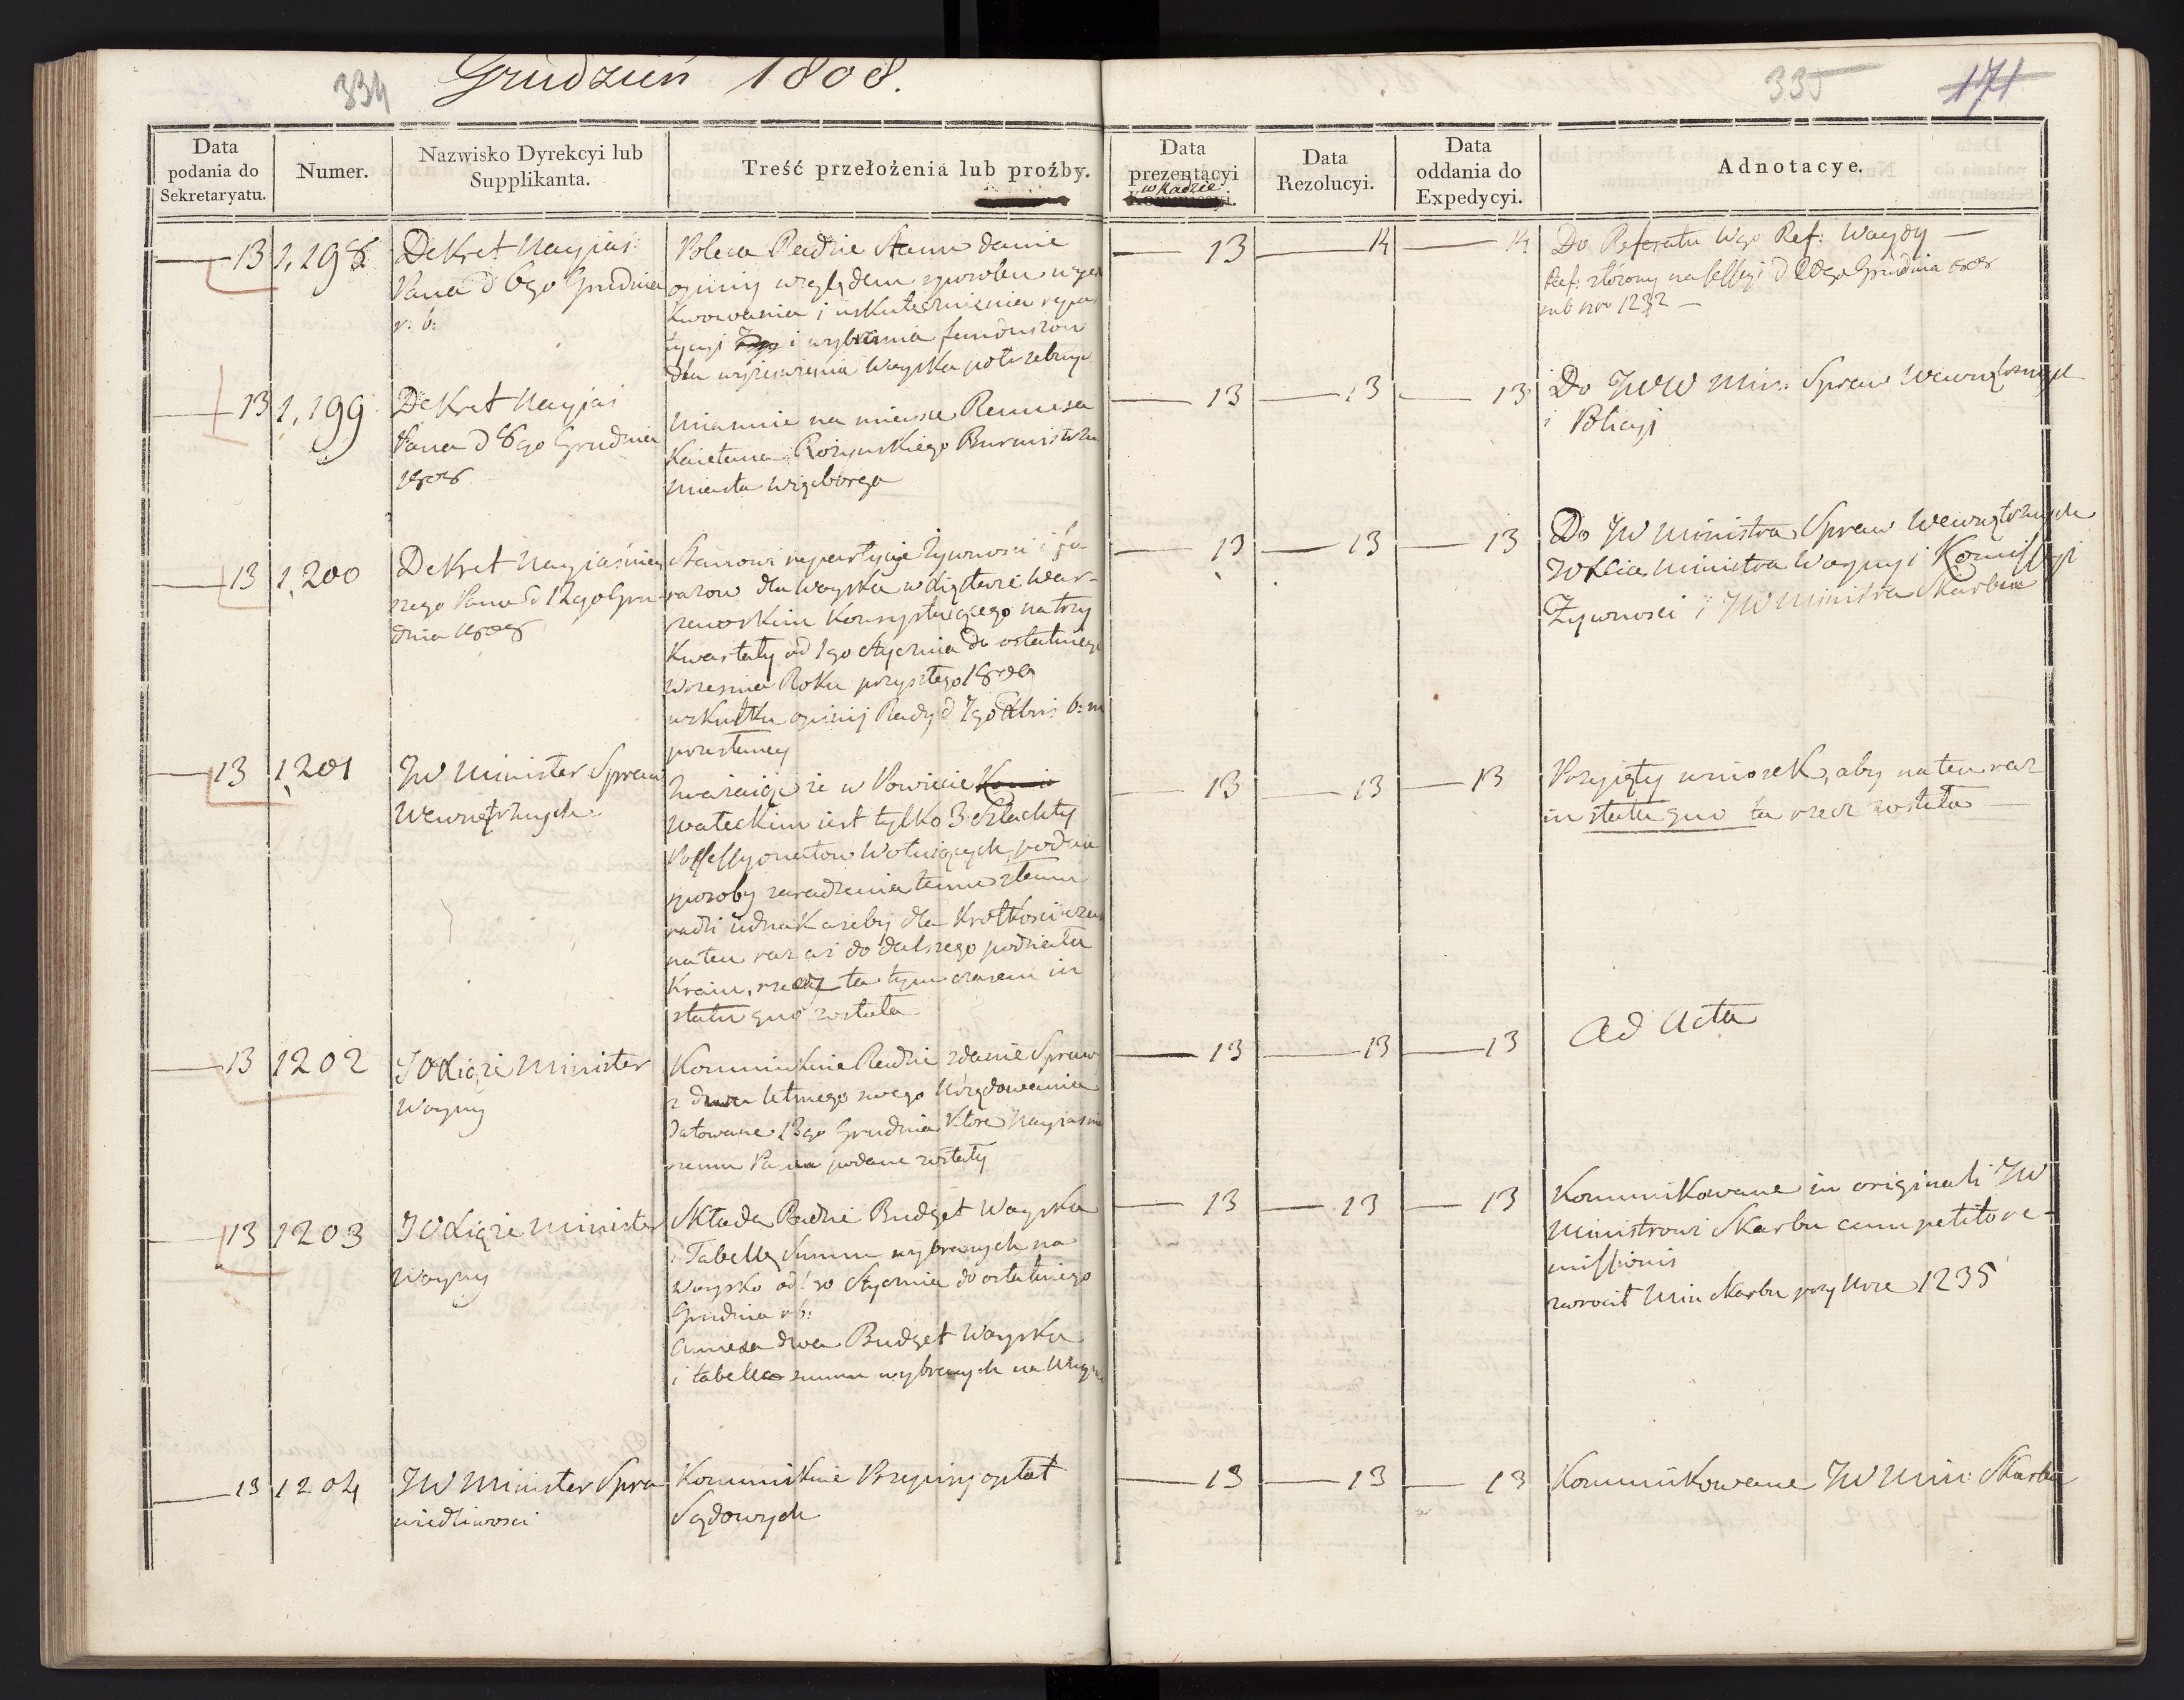 334
Grudzień 1808.
335
171
Data podania do Sekretaryatu.
Numer.
Nazwisko Dyrekcyi lub Supplikanta.
Treść przełożenia lub proźby.
Data prezentacyi w Radzie
Data Rezolucyi.
Data oddania do Expedycyi.
Adnotacye.
13
1,198
Dekret Nayjaś:
Pana d 6go Grudnia
r: b:
Poleca Radzie Stanu danie
opinij względem sposobu
i uskutecznienia
i wybrania funduszow
dla Woyska potrzebnych
13
14
14
Do Referatu Wgo Ref: Woydy —
Ref: złożony na Sessyi d 20go Grudnia 1808
sub nro 1232 —
13
1,199
Dekret Nayjaś
Pana d 8go Grudnia
1808
Mianuie na mieysce Remusa
Kaietana Rożynskiego Burmistrza
Miasta Więcborga
13
13
13
Do JWW Min: Spraw Wewnętrznych
i Policyi
13
1,200
Dekret Nayjaśniey
szego Pana d 12go Gru-
dnia 1808
Stanowi repartycyie żywnosci i fu-
razow dla woyska w Xięstwie War-
szawskim konsystuiącego na trzy
Kwartały od 1go Stycznia do ostatniego
Wrzesnia Roku przyszłego 1809
wskutku opinij Rady d 7go Xbris b: m
przesłaney
13
13
13
Do JW Ministra Spraw Wewnętrznych
JO Xcia Ministra Woyny i Komissyi
Żywnosci i JW Ministra Skarbu
13
1,201
JW Minister Spraw
Wewnętrznych
Zważaiąc że w Powiecie
Wałeckim iest tylko 3 Szlachty
Possessyonatow Wotuiących, podaie
sposoby zaradzenia temu złemu
radzi iednak ażeby dla Krótkosci czasu
na ten raz aż do dalszego podziału
Kraiu, rzecz ta tym czasem in
statu quo została
13
13
13
Przyięty wniosek, aby na ten raz
in statu quo ta rzecz została —
13
1202
JO Xiąże Minister
Woyny
Kommunikuie Radzie zdanie Spraw
z dwu letniego swego Urzędowania
Datowane 13go Grudnia Które Nayiaśniey
szemu Panu podane zostały
13
13
13
Ad Acta
13
1203
JO Xiąże Minister
Woyny
Składa Radzie Budżet Woyska
i Tabellę Summ wybranych na
Woysko od 1go Stycznia do ostatniego
Grudnia r b:
Annexa dwa Budżet Woyska
i tabella summ wybranych na Woysko
13
13
13
Kommunikowane in originali JW
Ministrowi Skarbu cum petito re-
missionis
zwrocił Min Skarbu przy Nrze 1235
13
1204
JW Minister Spra
wiedliwosci
Kommunikuie Przepisy opłat
Sądowych
13
13
13
Kommunikowane JW Min: Skarbu